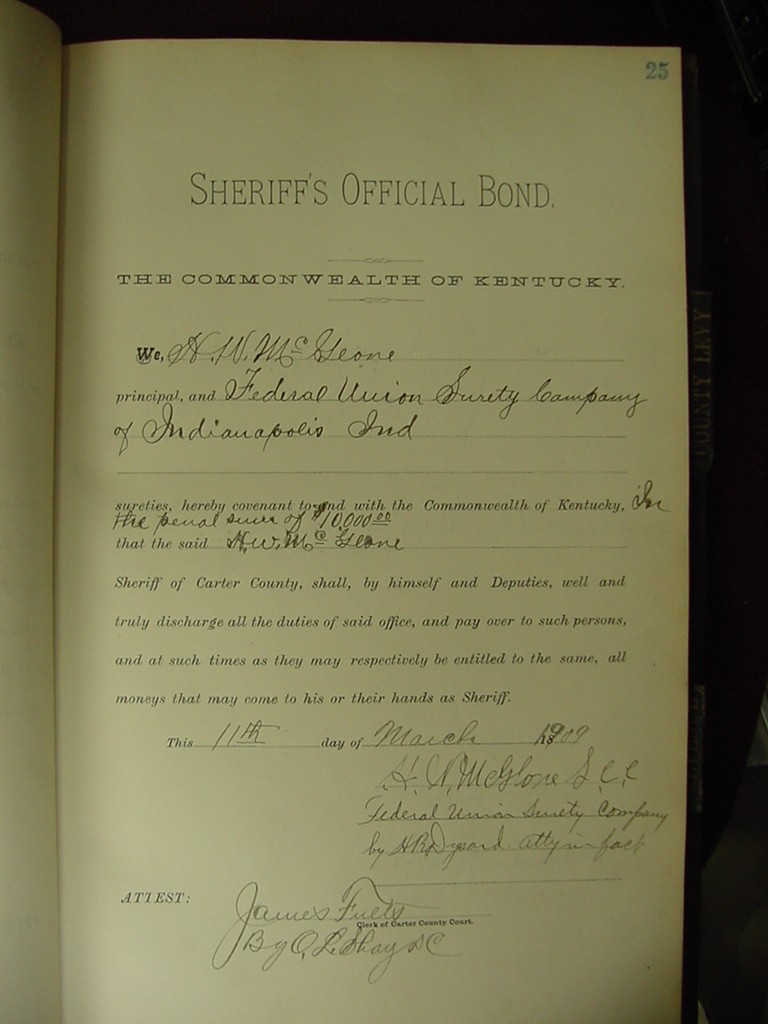 25
SHERIFF'S OFFICIAL BOND.
THE COMMONWEALTH OF KENTUCKY.
We, H. W. McGlone
principal, and Federal Union Surety Company
of Indianapolis Ind
sureties, hereby covenant to and with the Commonwealth of Kentucky, In
the penal sum of $10,000.00
that the said H. W. McGlone
Sheriff of Carter County, shall, by himself and Deputies, well and
truly discharge all the duties of said office, and pay over to such persons,
and at such times as they may respectively be entitled to the same, all
moneys that may come to his or their hands as Sheriff.
This 11th day of March 1909
H. W. McGlone S. C. C.
Federal Union Surety Company
by H R Dysard atty in fact
ATTEST:
James
Clerk of Carter County Court.
By O. L. DC
COUNTY LEVY